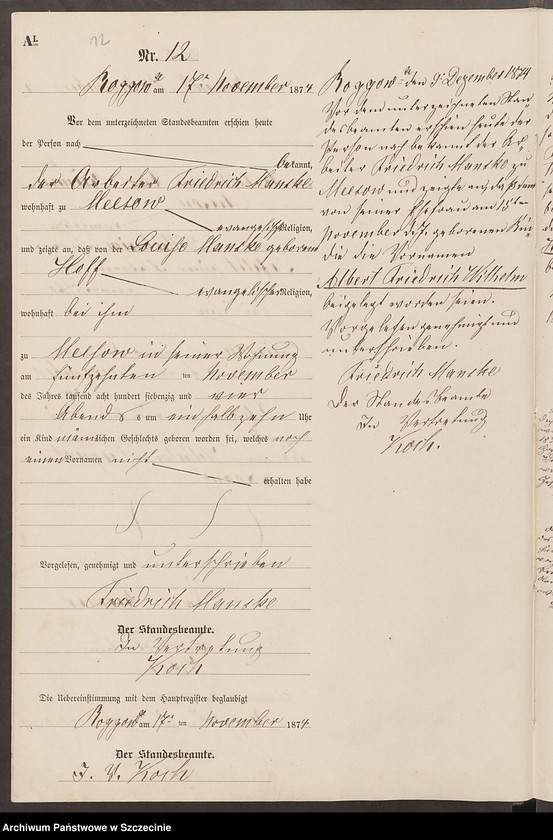 A1.
12
Nr. 12
Roggow am 17ten November 1874.
Vor dem unterzeichneten Standesbeamten erschien heute
der Person nach
bekannt,
der Arbeiter Friedrich Manske
wohnhaft zu Meesow
evangelischer Religion,
und zeigte an, daß von der Louise Manske geborene
Hoff
evangelischer Religion,
wohnhaft bei ihm
zu Meesow in seiner Wohnung
am fünfzehnten ten November
des Jahres tausend acht hundert siebenzig und vier
Abends um ein halb zehn Uhr
ein Kind männlichen Geschlechts geboren worden sei, welches noch
einen Vornamen nicht
erhalten habe
Vorgelesen, genehmigt und unterschrieben
Friedrich Manske
Der Standesbeamte.
In Vertretung
Koch
Die Uebereinstimmung mit dem Hauptregister beglaubigt
Roggow am 17ten November 1874.
Der Standesbeamte.
I. V. Koch
Roggow den 9. Dezember 1874
Vor dem unterzeichneten Stan
desbeamten erschien heute der
Person nach bekannt der Ar
beiter Friedrich Manske zu
Meesow und zeigte an, daß dem
von seiner Ehefrau am 15ten
November d. J. geborenen Kin
de die Vornamen
Albert Friedrich Wilhelm
beigelegt worden seien.
Vorgelesen genehmigt und
unterschrieben.
Friedrich Manske
Der Standesbeamte
In Vertretung
Koch.
Archiwum Państwowe w Szczecinie